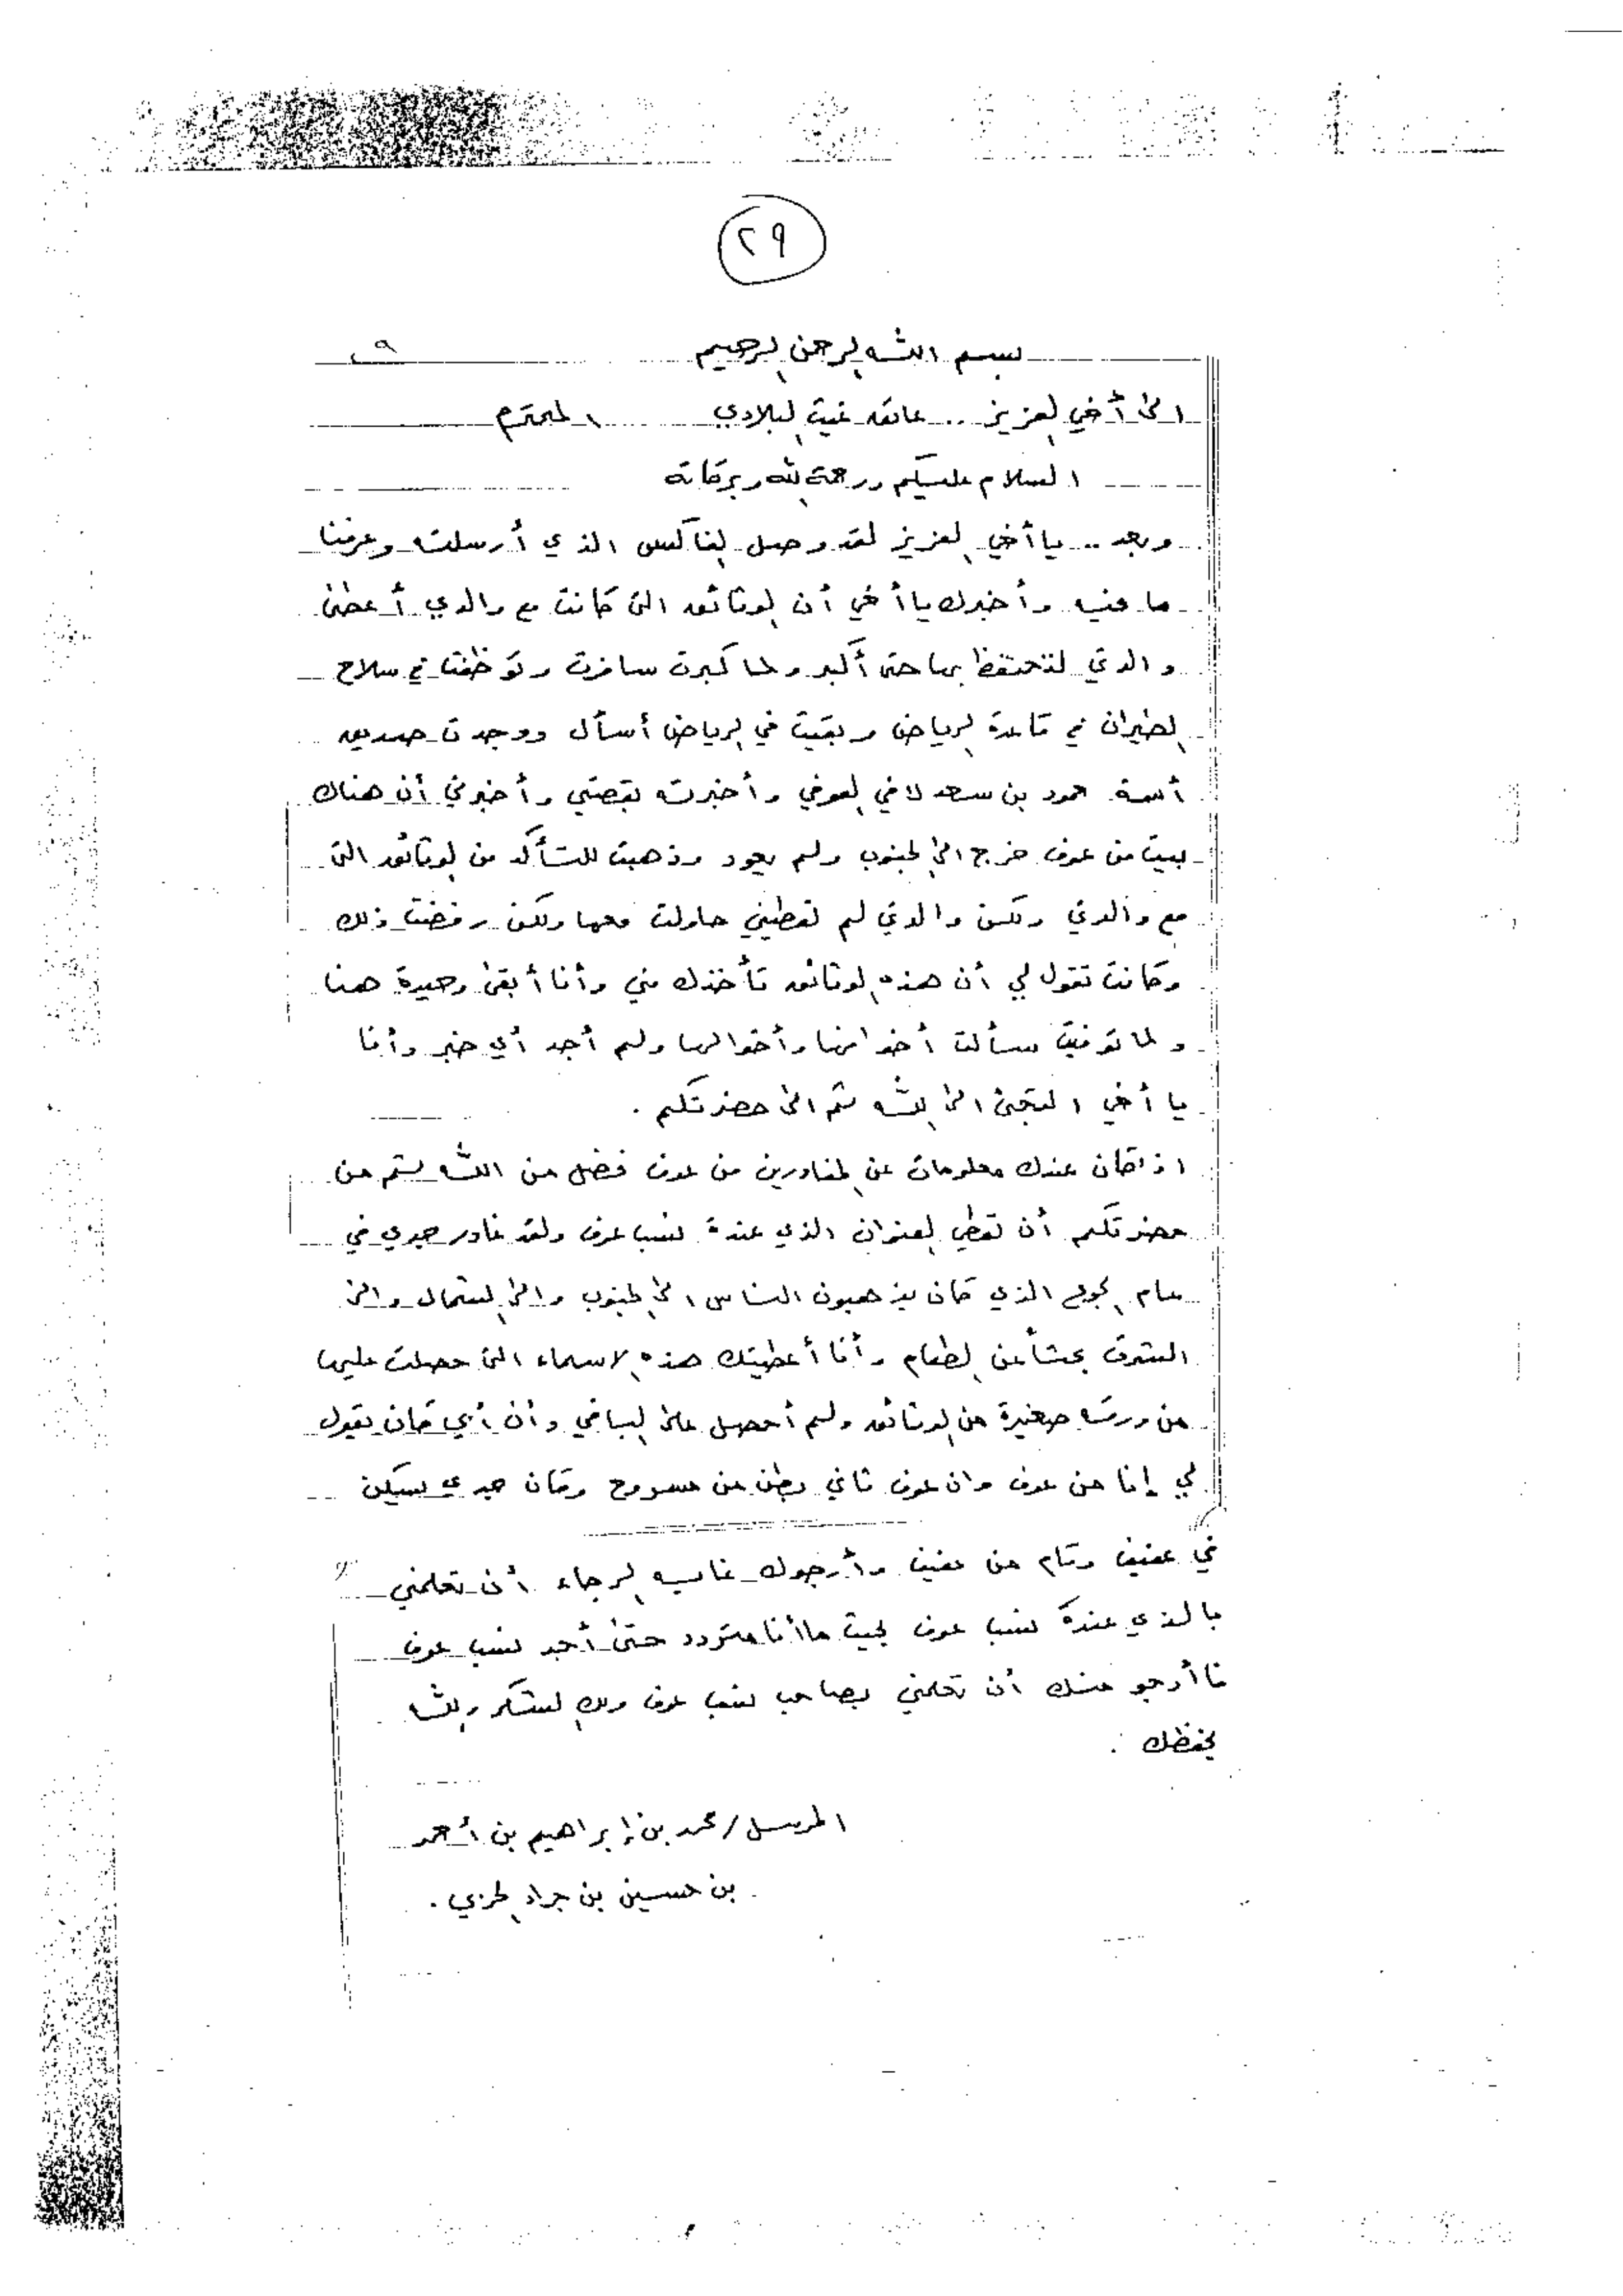 ٢٩
بسم الله الرحمن الرحيم
الى أخي العزيز .. عاتق غيث البلادي المحترم
السلام عليكم ورحمة الله وبركاته
وبعد .. يا أخي العزيز لقد وصل الفاكس الذي أرسلته وعرفنا
ما فيه وأخبرك يا أخي أن الوثائق التى كانت مع والدي أعطى
والدتي لتحتفظ بها حتى أكبر ولما كبرت سافرت وتوظفت في سلاح
الطيران في قاعدة الرياض وبقيت في الرياض أسأل ووجدت صديق
أسمة حمود بن سعد لافي العوفي وأخبرته بقصتي وأخبرني أن هناك
بيت من عوف خرج الى الجنوب ولم يعود وذهبت للتأكد من الوثائق التى
مع والدتي ولكن والدتي لم تعطيني حاولت معها ولكن رفضت ذلك
وكانت تقول لي أن هذه الوثائق تأخذك مني وأنا أبقى وحيدة هنا
ولما توفيت سألت أخوانها وأخوالها ولم أجد أي خبر وأنا
يا أخي التجئ الى الله ثم الى حضرتكم .
اذا كان عندك معلومات عن المغادرين من عوف فضل من الله ثم من
حضرتكم أن تعطي العنوان الذي عندة نسب عوف ولقد غادر جدي في
عام الجوع الذي كان يذهبون الناس الى الجنوب والى الشمال والى
الشرق بحثاً عن الطعام وأنا أعطيتك هذه الاسماء التى حصلت عليها
من ورقه صغيرة من الوثائق ولم أحصل على الباقي وأن أبي كان يقول
لي إنا من عوف وان عوف ثاني بطن من مسروح وكان جدي يسكن
في عفيف وقام من عفيف وأرجوك غايه الرجاء أن تعلمني
بالذي عندة نسب عوف بحيث ما أنا متردد حتى أجد نسب عوف
فا أرجو منك أن تعلمني بصاحب نسب عوف ولك الشكر والله
يحفظك .
المرسل / محمد بن إبراهيم بن أحمد
بن حسين بن جراد الحربي .